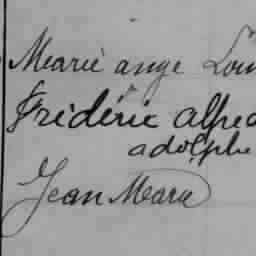 Marie ange Lou
Frédéric alfred
adolphe
Jean Mara